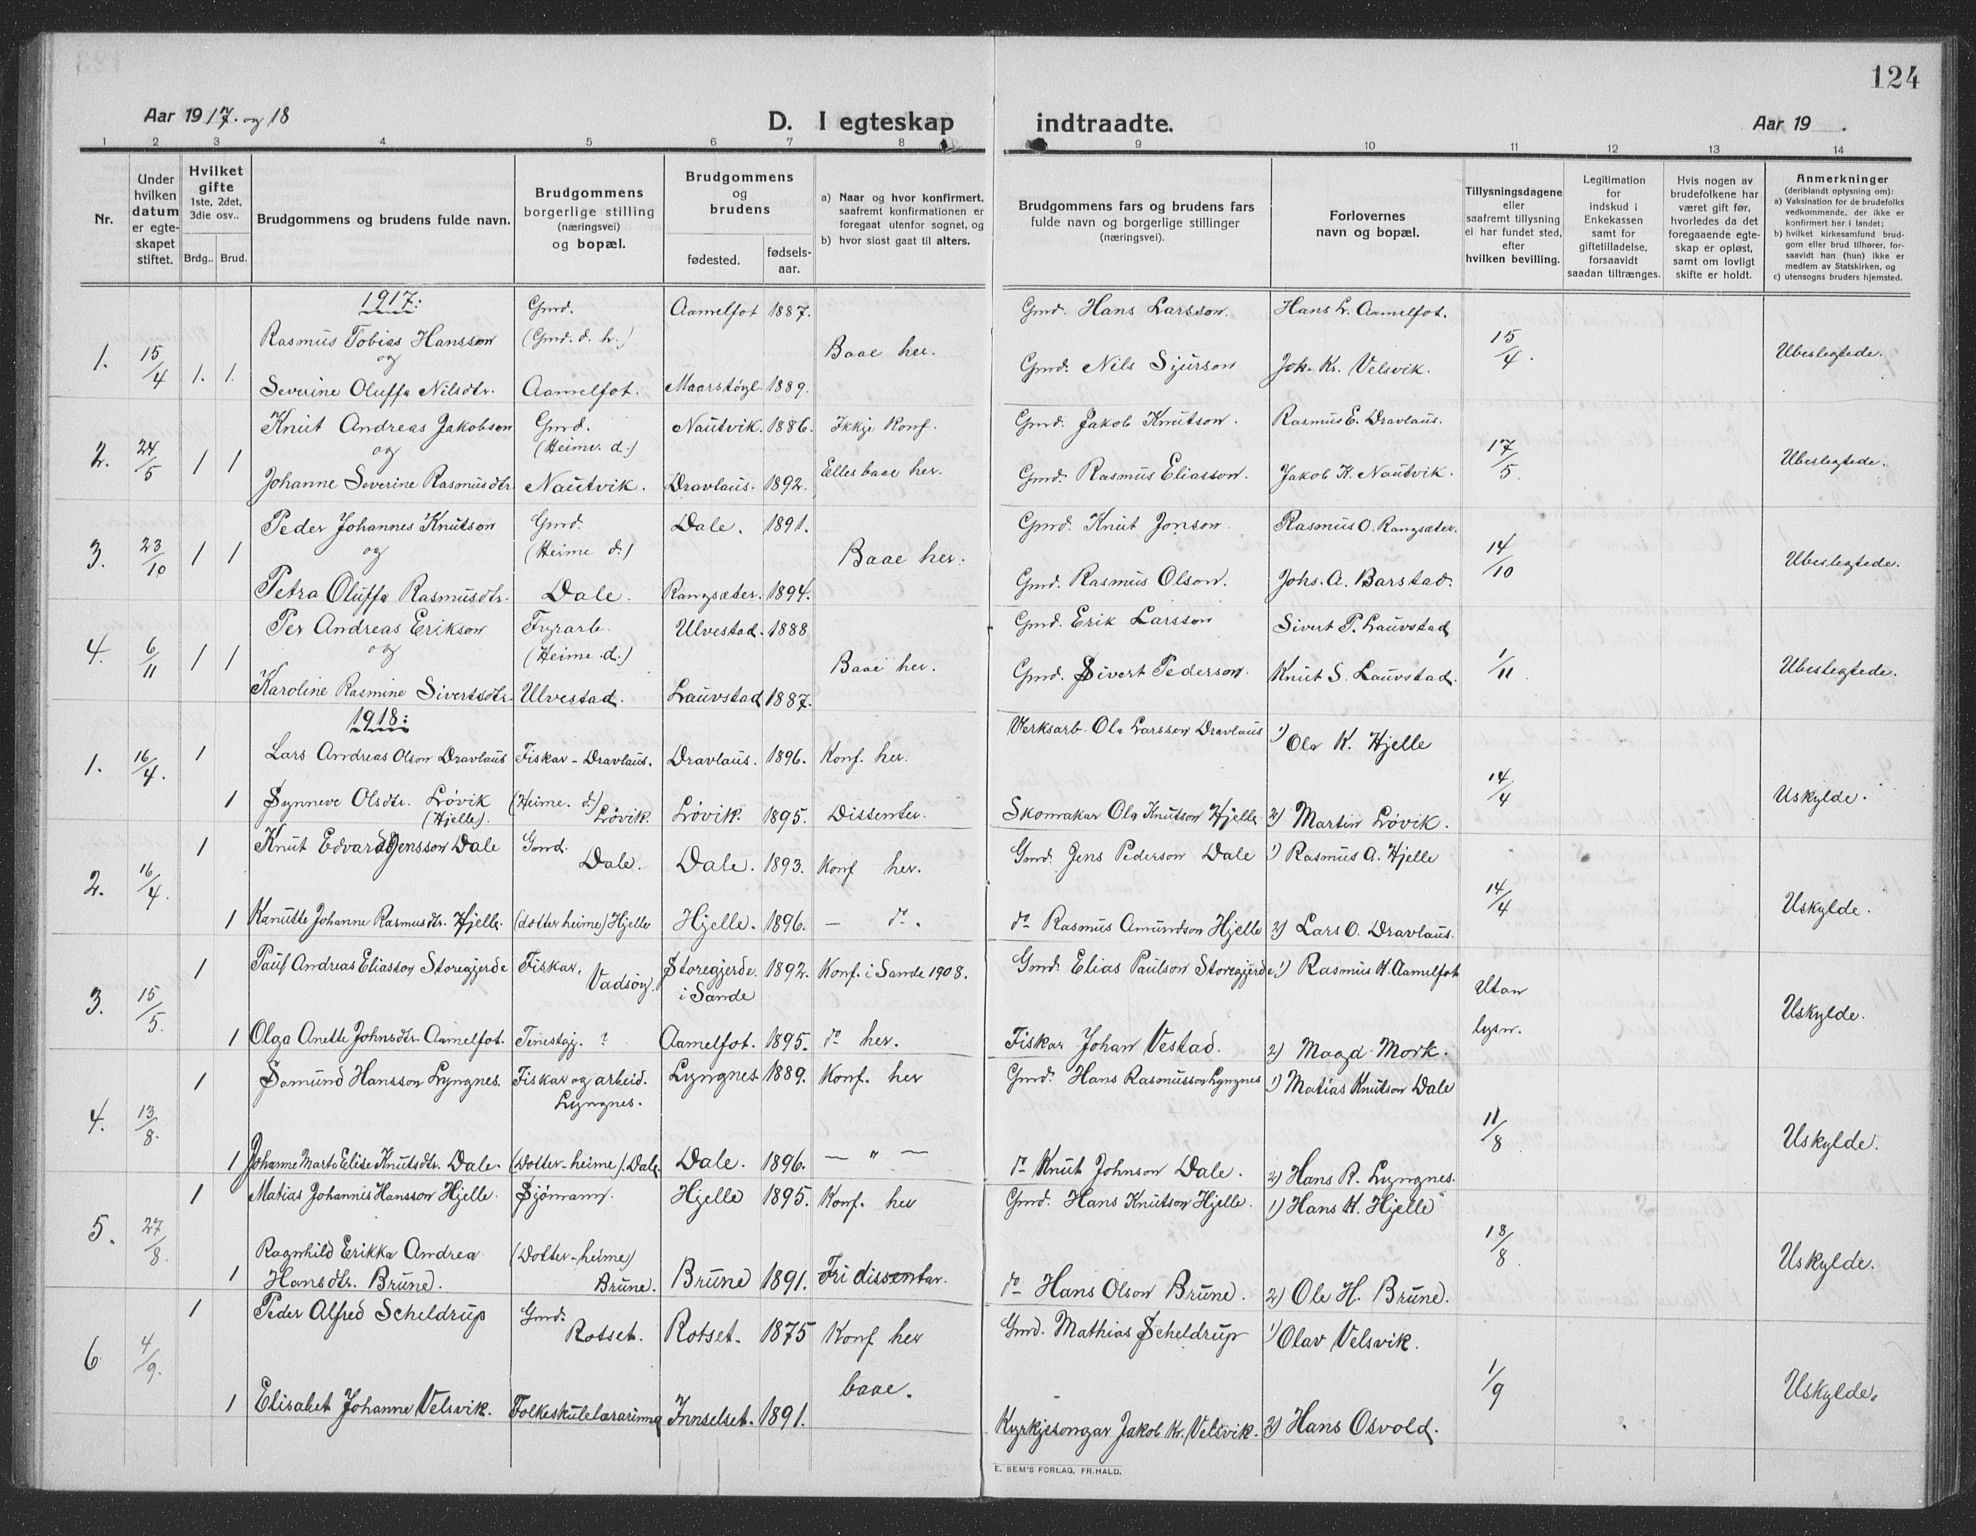 124
Aar 1917. og 18
D. I egteskap indtraadte.
Aar 19 .
1 2 3 4 5 6 7 8 9 10 11 12 13 14
Nr.
Under
hvilken
datum
er egte-
skapet
stiftet.
Hvilket
gifte
1ste, 2det,
3die osv..
Brdg.. Brud.
Brudgommens og brudens fulde navn.
Brudgommens
borgerlige stilling
(næringsvei)
og bopæl.
Brudgommens
og
brudens
fødested.
fødsels-
aar.
a) Naar og hvor konfirmert,
saafremt konfirmationen er
foregaat utenfor sognet, og
b) hvor sidst gaat til alters.
Brudgommens fars og brudens fars
fulde navn og borgerlige stillinger
(næringsvei).
Forlovernes
navn og bopæl.
Tillysningsdagene
eller
saafremt tillysning
ei har fundet sted,
efter
hvilken bevilling.
Legitimation
for
indskud i
Enkekassen
samt for
giftetilladelse,
forsaavidt
saadan tiltrænges.
Hvis nogen av
brudefolkene har
været gift før,
hvorledes da det
foregaaende egte-
skap er opløst,
samt om lovligt
skifte er holdt.
Anmerkninger
(deriblandt oplysning om):
a) Vaksination for de brudefolks
vedkommende, der ikke er
konfirmert her i landet;
b) hvilket kirkesamfund brud-
gom eller brud tilhører, for-
saavidt han (hun) ikke er
medlem av Statskirken, og
c) utensogns bruders hjemsted.
1917:
Gmd. Aamelfot 1887. Gmd. Hans Larsson. Hans L. Aamelfot.
Rasmus Tobias Hansson (Gmd. d. h.)
1. 15/4 1. 1. og Baae her. Gmd. Nils Sjurson Joh. Kr. Velsvik. 15/4. Ubeslegtede.
Severine Oluffa Nilsdtr. Aamelfot. Maarstøyl 1889.
Knut Andreas Jakobson Gmd. Nautvik. 1886. Ikkje Konf. Gmd. Jakob Knutson. Rasmus E. Dravlaus.
2. 24/5 1 1 og (Heimv. d.) 17/5. Ubeslegtede.
Johanne Severine Rasmusdtr. Nautvik. Dravlaus. 1892. Elles baae her. Gmd. Rasmus Eliasson. Jakob K. Nautvik.
Peder Johannes Knutson Gmd. Dale. 1891. Gmd. Knut Jonson. Rasmus O. Rangsæter.
3. 23/10 1 1 og (Heime d.) Baae her. 14/10 Ubeslegtede.
Petra Oluffa Rasmusdtr. Dale. Rangsæter. 1894. Gmd. Rasmus Olson. Johs. A. Barstad.
Per Andreas Erikson Fyrarb. Ulvestad. 1888 Gmd. Erik Larsson Sivert P. Lauvstad
4. 6/11 1 1 og (Heime d.) Baae her. 1/11. Ubeslegtede.
Karoline Rasmine Sivertsdtr. Ulvestad. Lauvstad 1887. Gmd. Sivert Pederson. Knut S. Lauvstad.
1918:
1. 16/4. 1 Lars Andreas Olson Dravlaus Fiskar - Dravlaus. Dravlaus. 1896. Konf. her. Verksarb. Ola Larsson Dravlaus 1) Ola K. Hjelle
14/4 Uskylde.
1 Synneve Olsdtr. Løvik (Heime. d.) Løvik. 1895. Dissenter. Skomakar Ola Knutson Hjelle 2) Martin Løvik.
(Hjelle). Løvik.
1 Knut Edvard Jensson Dale Gmd. Dale. 1893. Konf her. Gmd. Jens Pederson Dale 1) Rasmus A. Hjelle
Dale.
2. 16/4. 14/4 Uskylde.
1 Kanutte Johanne Rasmusdtr. Hjelle. (dotter heime) Hjelle Hjelle. 1896. — do. do Rasmus Amundson Hjelle 2) Lars O. Dravlaus.
1 Paul Andreas Eliasson Storegjerde Fiskar, Storegjerde. 1892. Konf. i Sande 1908. Gmd. Elias Paulson Storegjerde 1) Rasmus H. Aamelfot
Vadsøy. i Sande
3. 15/5. Utan lysn. Uskylde.
1 Olga Anette Johnsdtr. Aamelfot. Tenestgj. ? Aamelfot. 1895. do her. Fiskar Johan Vestad. 2) Magd. Mork.
1 Samund Hansson Lyngnes. Fiskar og arbeid. Lyngnes 1889. Konf. her Gmd. Hans Rasmusson Lyngnes 1) Matias Knutson Dale
Lyngnes.
4. 13/8. 11/8 Uskylde.
1 Johanne Marta Elise Knutsdtr. Dale. (Dotter-heime) Dale. Dale. 1896. — " — do Knut Johnson Dale. 2) Hans R. Lyngnes.
1 Matias Johannis Hansson Hjelle. Sjømann. Hjelle 1895. Konf. her Gmd. Hans Knutson Hjelle. 1) Hans H. Hjelle
5. 27/8. Ragnhild Erikka Andrea (Dotter-heime) 18/8. Uskylde.
1 Hansdtr. Brune. Brune. Brune 1891. Fri dissentar. do Hans Olson Brune. 2) Ole H. Brune.
1 Peder Alfred Scheldrup Gmd. Rotset. 1875 Konf her Gmd. Mathias Scheldrup 1) Olav Velsvik.
Rotset.
6 4/9. baae. 1/9 Uskylde.
1 Elisabet Johanne Velsvik. Folkeskulelærarinna Innselset. 1891. Kyrkjesongar Jakob Kr. Velsvik. 2) Hans Osvold.
E. SEM'S FORLAG, FR.HALD.